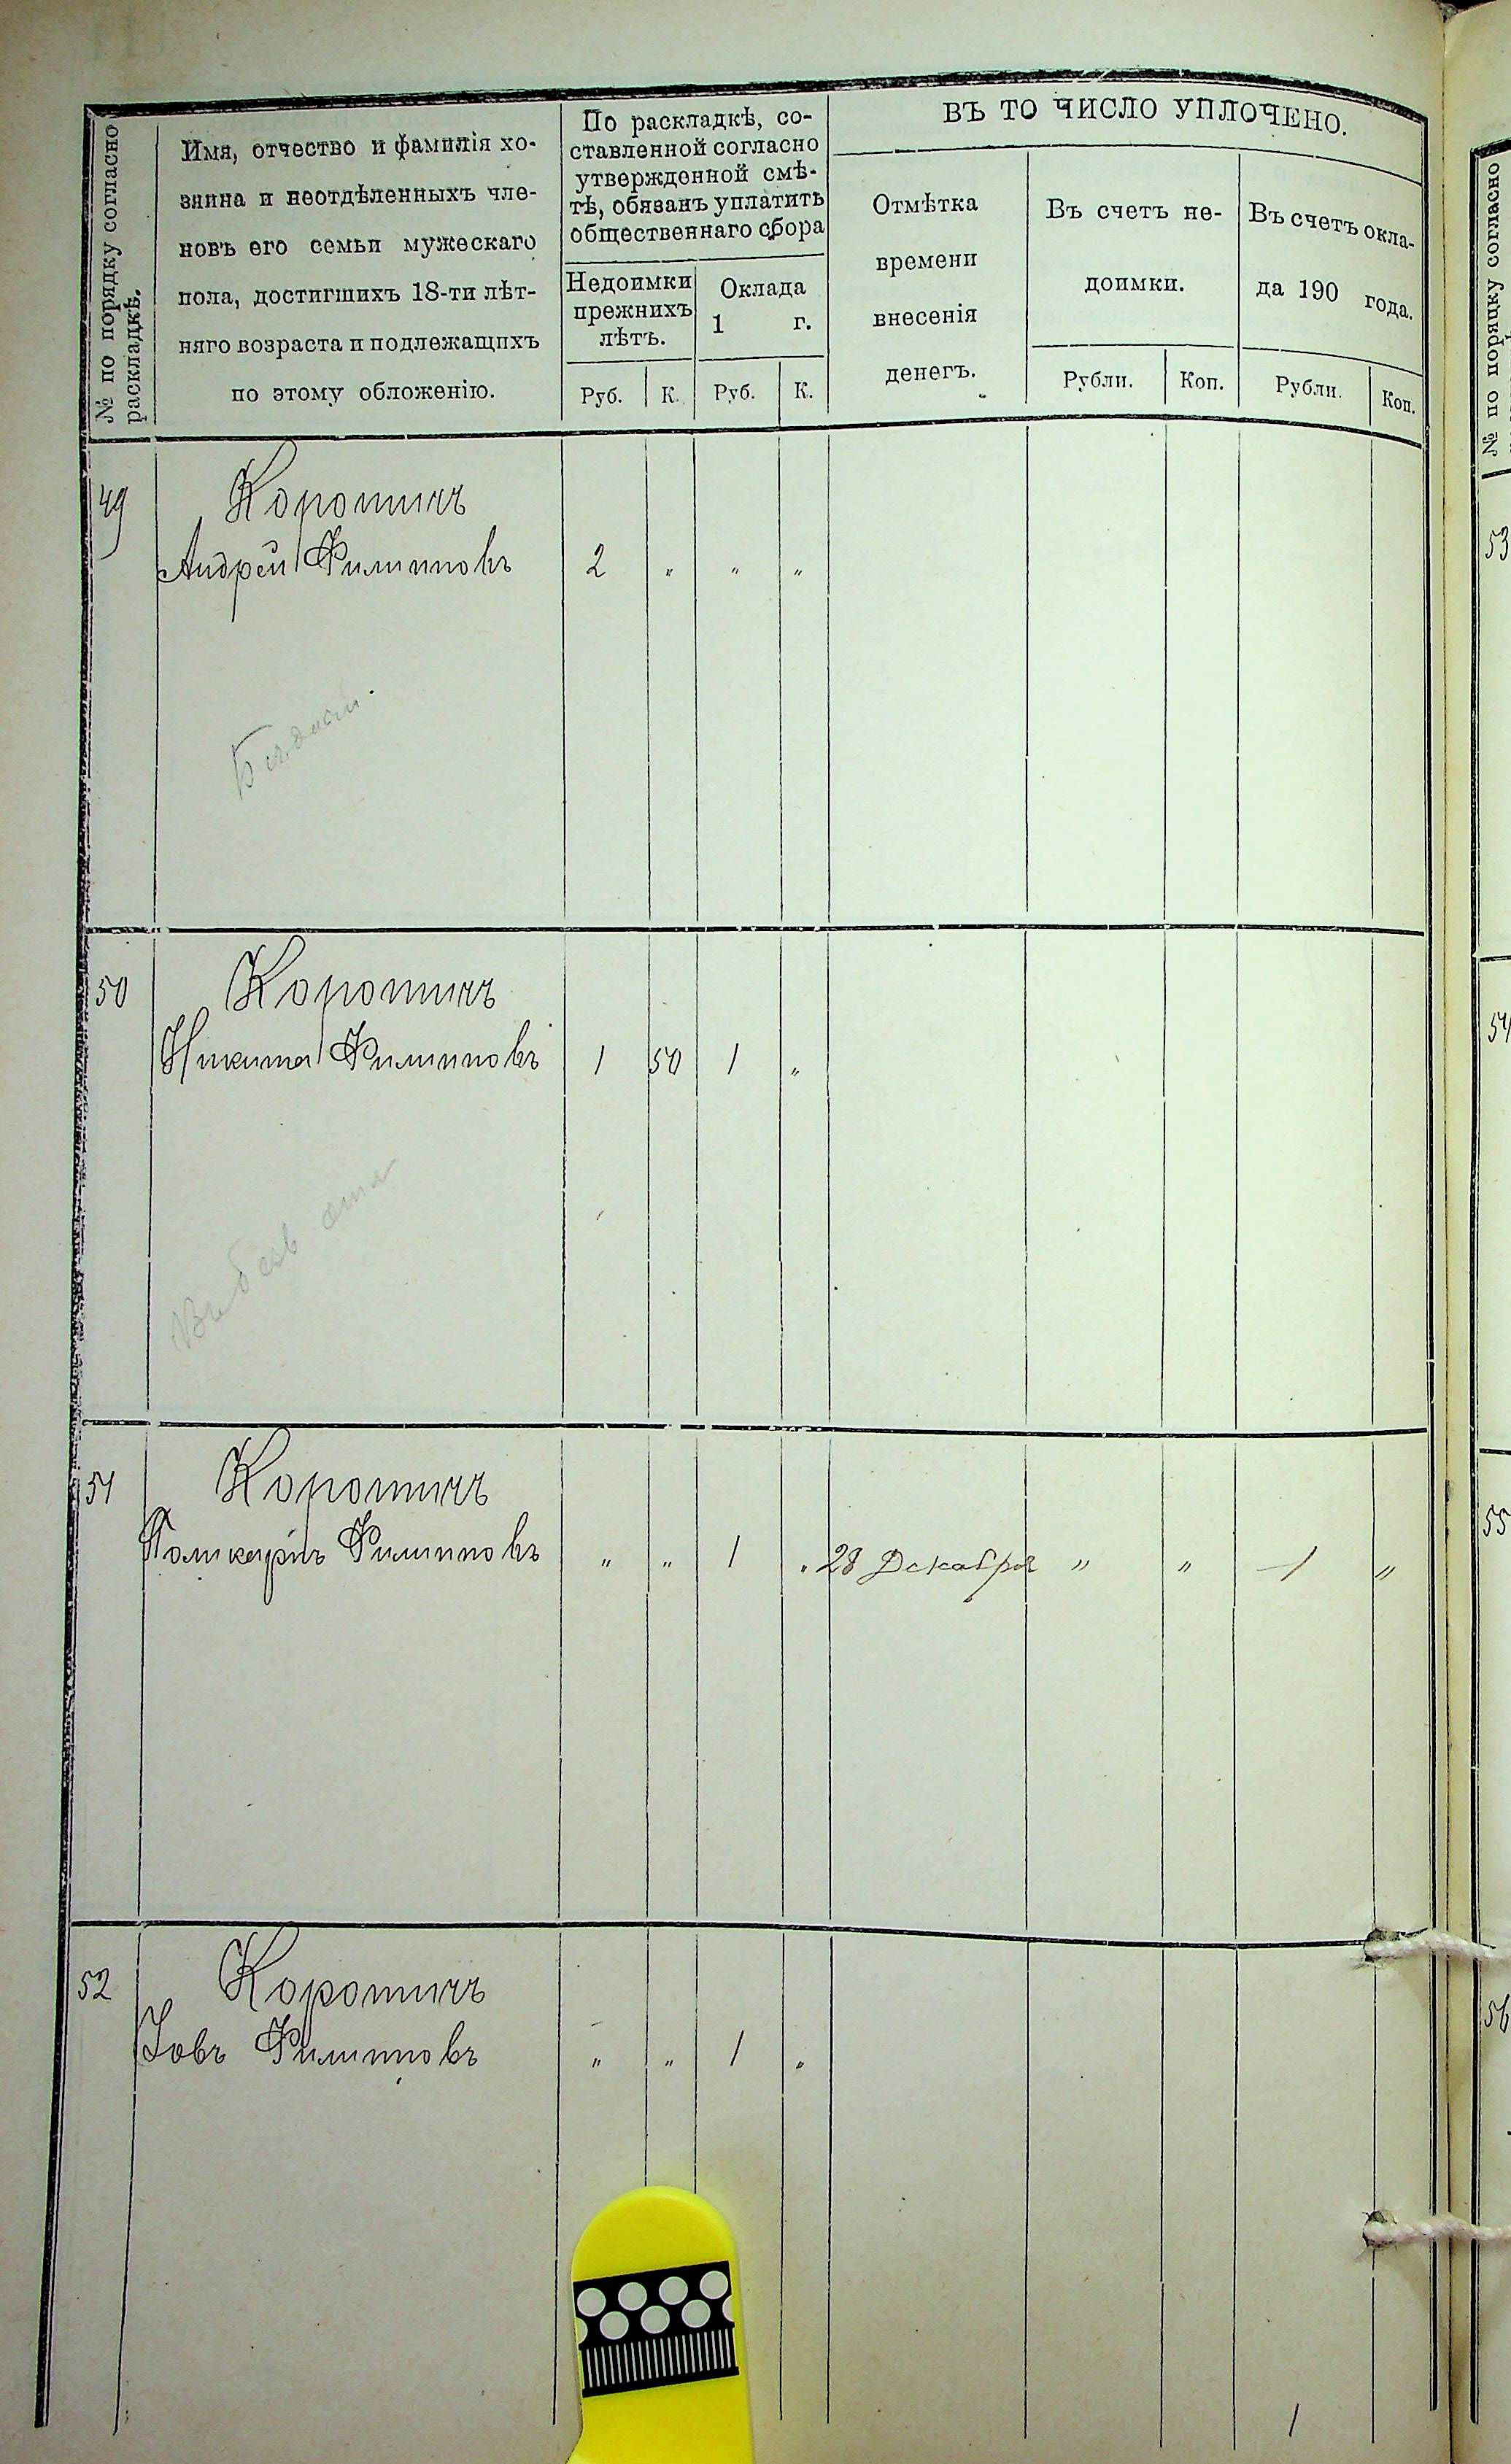 № по порядку согласно
раскладкѣ.
Имя, отчество и фамилія хо-
зяина и неотдѣленныхъ чле-
новъ его семьи мужескаго
пола, достигшихъ 18-ти лѣт-
няго возраста и подлежащихъ
по этому обложенію.
По раскладкѣ, со-
ставленной согласно
утвержденной смѣ-
тѣ, обязанъ уплатить
общественнаго сбора
Недоимки
прежнихъ
лѣтъ.
Оклада
1 г.
Руб. К. Руб. К.
ВЪ ТО ЧИСЛО УПЛОЧЕНО.
Отмѣтка
времени
внесенія
денегъ.
Въ счетъ не-
доимки.
Рубли. Коп.
Въ счетъ окла-
да 190 года.
Рубли. Коп.
49 Коротичъ
Андрей Филиповъ 2 " " "
50 Коротичъ
Никита Филиповъ 1 50 1 "
51 Коротичъ
Поликарпъ Филиповъ " " 1 " 28 Декабря " " 1 "
52 Коротичъ
Іовъ Филиповъ " " 1 "
1
№ по порядку согласно
53
54
55
56